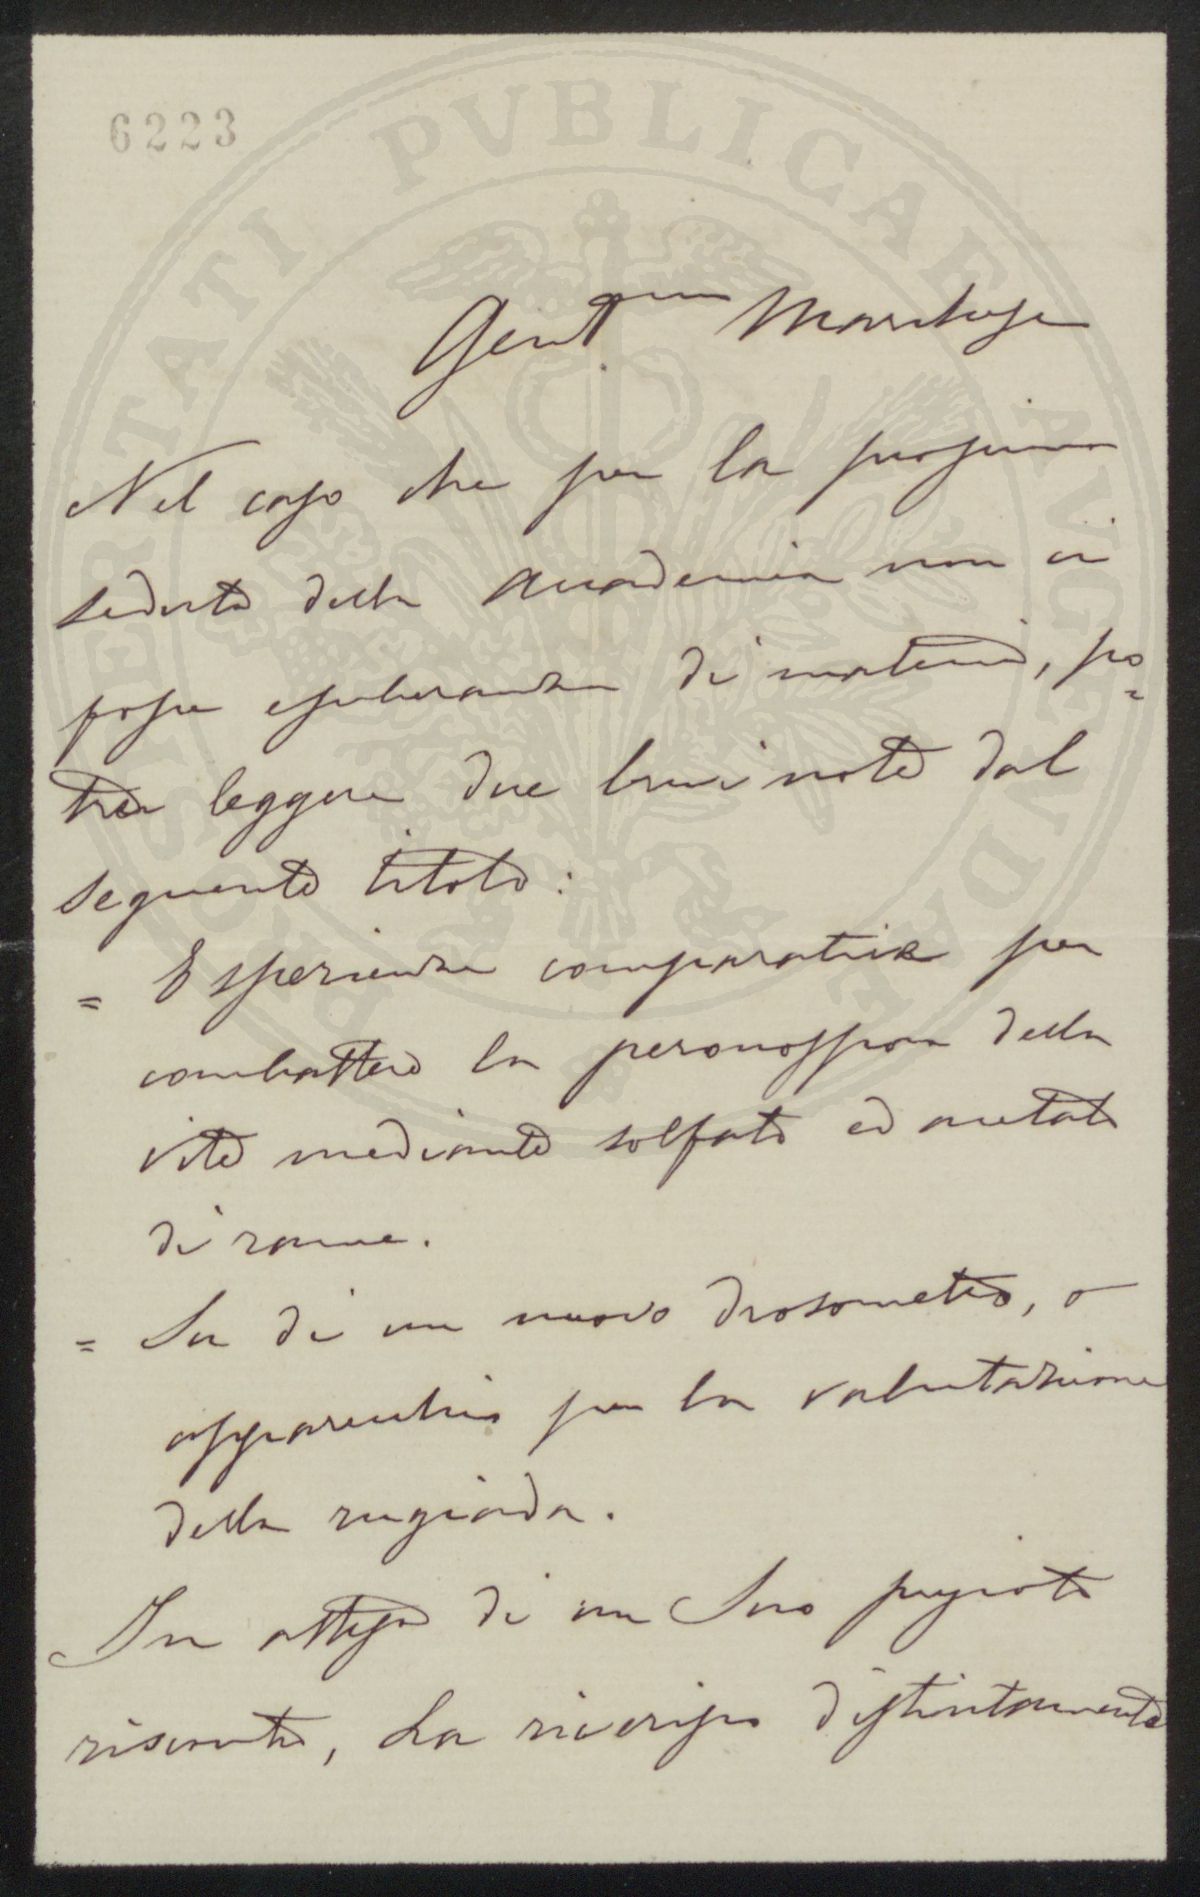 6223
Gent.mo Marchese
Nel caso che per la prossima
seduta della Accademia non vi
fosse esuberanza di materia, po=
trei leggere due brevi note dal
seguente titolo:
= Esperienze comparative per
combattere la peronospora della
vite mediante solfato ed acetato
di rame.
= Su di un nuovo drosometro, o
apparecchio per la valutazione
della rugiada.
In attesa di un Suo pregiato
riscontro, La riverisco distintamente
PROSPERITATI PVBLICAE AVGENDAE